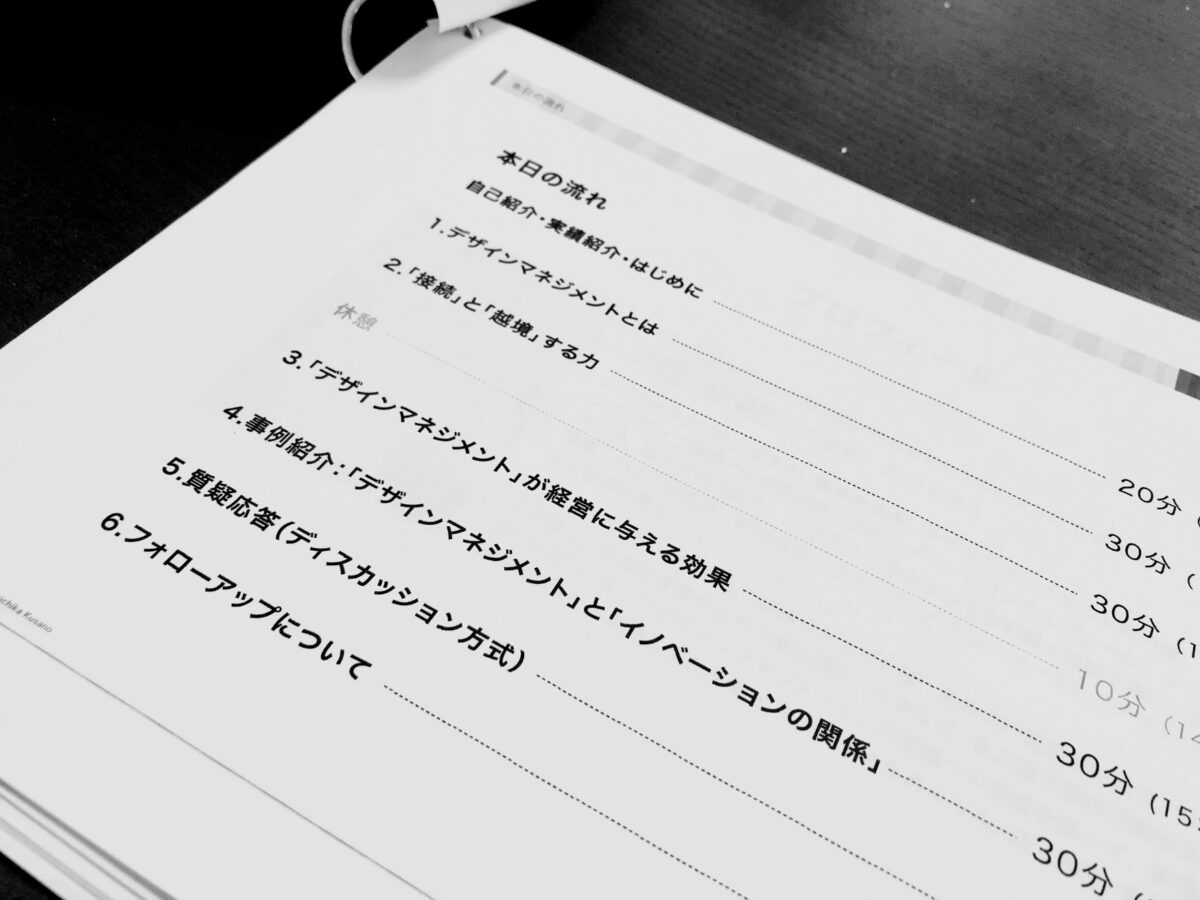 本日の流れ
本日の流れ
自己紹介・実績紹介・はじめに 20分
1.デザインマネジメントとは 30分 (
2.「接続」と「越境」する力 30分 (1
休憩 10分 (14
3.「デザインマネジメント」が経営に与える効果 30分 (15
4.事例紹介:「デザインマネジメント」と「イノベーションの関係」 30分 (
5.質疑応答(ディスカッション方式)
6.フォローアップについて
Kusano